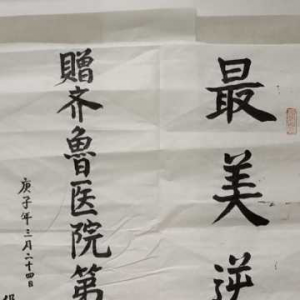 最美逆
赠齐鲁医院第
庚子年三月二十四日